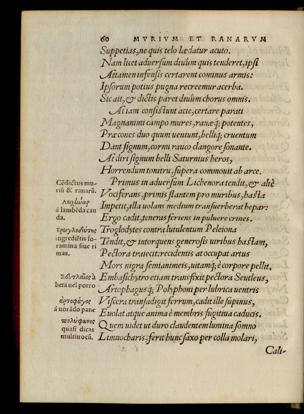 60 MVRIVM ET RANARVM
Suppetias, ne quis telo lædatur acuto.
Nam licet aduersum diuûm quis tenderet, ipsi
Attamen infensis certarent cominus armis:
Ipsorum potius pugna recreemur acerba.
Sic ait, & dictis paret diuûm chorus omnis.
At iam consistunt acie, certare parati
Magnanimi campo mures, ranæq́; potentes,
Præcones duo quum ueniunt, belliq́; cruentum
Dant signum, cornu rauco clangore sonante.
At diri signum belli Saturnius heros,
Horrendum tonitru, supera commouit ab arce.
Primus in aduersum Lichenora tendit, & altè
Vociferans, primis stantem pro muribus, hasta
Impetit, illa uolans medium transuerberat hepar:
Ergo cadit, teneras feriens in puluere crines.
Troglodytes contra lutulentum Peleiona
Tendit, & intorquens generosis uiribus hastam,
Pectora traiecit: recidentis at occupat artus
Mors nigra semianimeis, uitamq́; è corpore pellit.
Embasichytro etiam transfixit pectora Seutleus,
Artophagusq́; Polyphoni per lubrica uentris
Viscera transadigit ferrum, cadit ille supinus,
Euolat atque anima è membris fugitiua caducis.
Quem uidet ut duro claudentem lumina somno
Limnocharis: ferit hunc saxo per colla molari,
Cali-
Cõflictus muriũ & ranarũ.
à lambẽda cauda.
τρωγλοδύτης
ingrediẽtis foramina siue rimas.
à beta uel porro
ἀρτοφάγος
à uorãdo pane
πολύφωνος
quasi dicas multiuocũ.